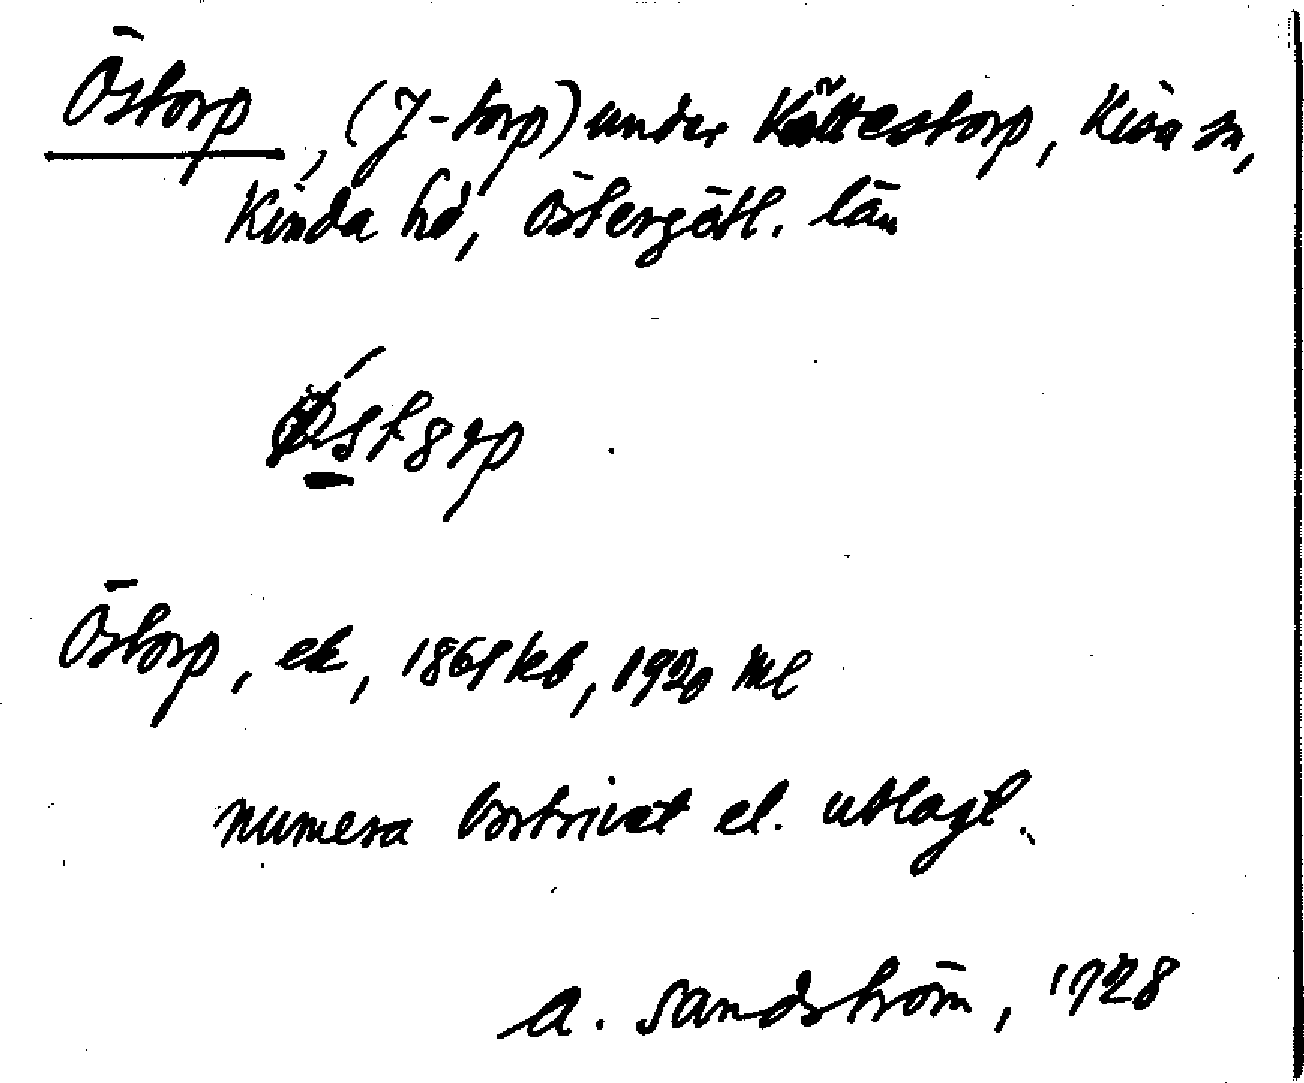 Östorp, (J-torp) under Kättestorp, Kisa sn,
Kinda hd, Östergötl. län
Östorp, ek, 1869 kb, 1920 ml
numera bortrivet el. utlagt.
A. Sandström, 1928